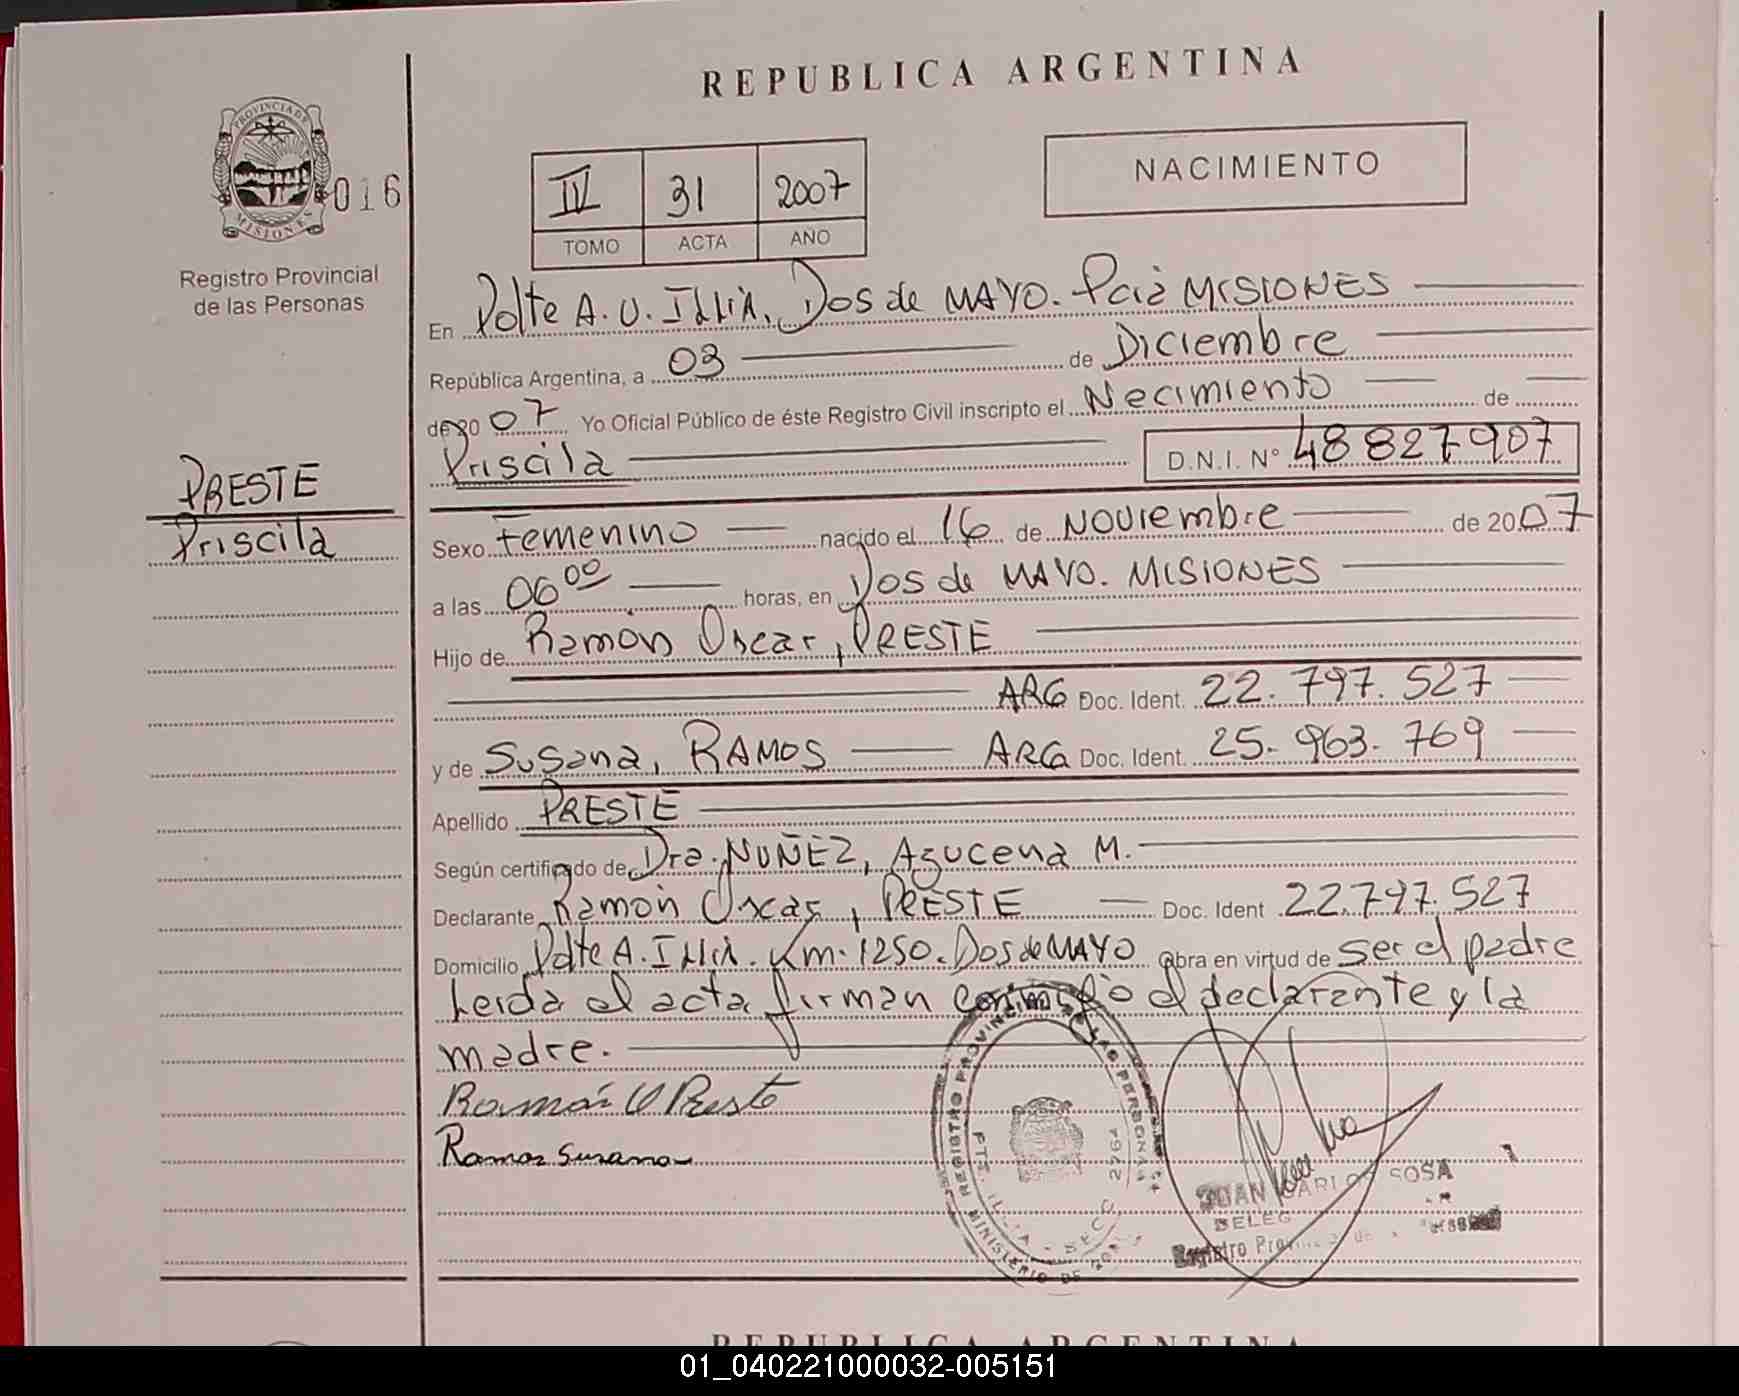 REPUBLICA ARGENTINA
PROVINCIA DE
MISIONES
016
Registro Provincial
de las Personas
IV 31 2007
TOMO ACTA AÑO
NACIMIENTO
En Pdte A. U. Illia, Dos de MAYO. Pcia MISIONES
República Argentina, a 03 de Diciembre
de 20 07 Yo Oficial Público de éste Registro Civil inscripto el Nacimiento de
Priscila D.N.I. N° 48 827 907
PRESTE
Priscila
Sexo Femenino nacido el 16 de Noviembre de 20 07
a las 06 00 horas, en Dos de MAYO. MISIONES
Hijo de Ramón Oscar, PRESTE
ARG Doc. Ident. 22.797.527
y de Susana, RAMOS ARG Doc. Ident. 25.963.769
Apellido PRESTE
Según certificado de Dra. NUÑEZ, Azucena M.
Declarante Ramón Oscar, PRESTE Doc. Ident 22.797.527
Domicilio Pdte A. Illia. Km. 1250. Dos de MAYO Obra en virtud de ser el padre
Leida el acta firman conmigo el declarante y la
madre.
Ramón O Preste
Ramos Susana
REGISTRO PROVINCIAL DE LAS PERSONAS
MINISTERIO DE
PTE. ILLIA - SECC. 2294
JUAN CARLOS SOSA
DELEG
Registro Prov
REPUBLICA ARGENTINA
01_040221000032-005151